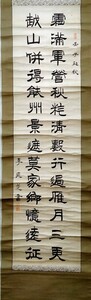 霜滿軍營秋氣清數行過雁月三更
越山併得能州景遮莫家鄉憶遠征